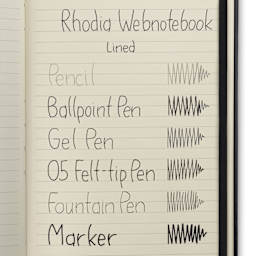 Rhodia Webnotebook
Lined
Pencil
Ballpoint Pen
Gel Pen
05 Felt-tip Pen
Fountain Pen
Marker